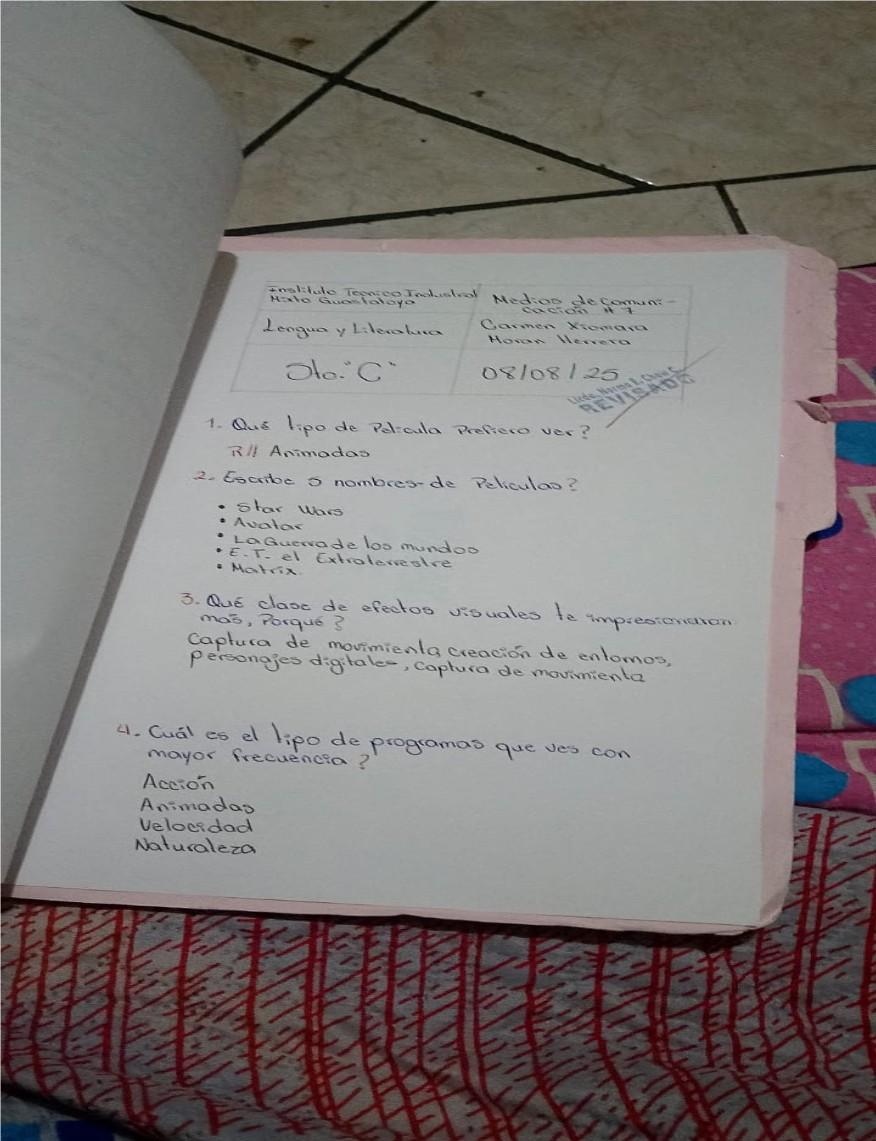 Instituto Tecnico Industrial
Mixto Guastatoya
Medios de Comuni-
cación # 7
Lengua y Literatura
Carmen Xiomara
Moran Herrera
5to. "C"
08/08/25
Licda. Norma E.
REVISADO
1. Qué tipo de Pelicula Prefiero ver?
R// Animadas
2. Escribe 5 nombres de Peliculas?
• Star Wars
• Avatar
• La Guerra de los mundos
• E.T. el Extraterrestre
• Matrix.
3. Qué clase de efectos visuales te impresionaron
más, Porqué?
Captura de movimienta, creación de entornos,
personajes digitales, captura de movimienta
4. Cuál es el tipo de programas que ves con
mayor frecuencia?
Acción
Animadas
Velocidad
Naturaleza